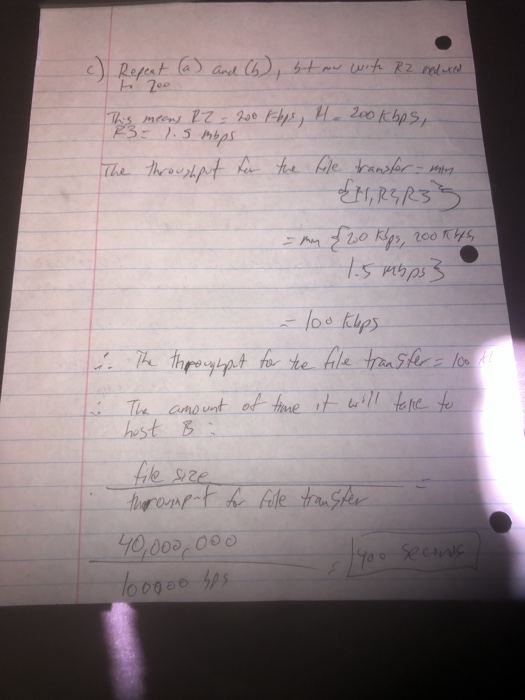 c) Repeat (a) and (b), but now with R2 reduced
to 200
This means R2 = 200 Kbps, R1 = 200 Kbps,
R3 = 1.5 Mbps
The throughput for the file transfer = min
{R1, R2, R3}
= min {200 Kbps, 200 Kbps,
1.5 Mbps}
= 100 Kbps
∴ The throughput for the file transfer = 100
∴ The amount of time it will take to
host B =
file size =
throughput for file transfer
40,000,000 = 400 seconds
100000 bps